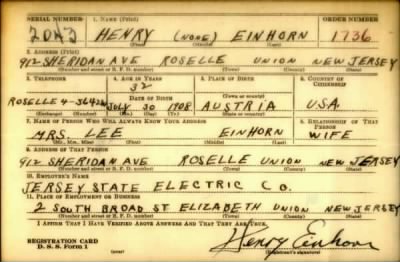 SERIAL NUMBER 1. NAME (Print) ORDER NUMBER
HENRY (NONE) EINHORN 1736
(First) (Middle) (Last)
2. ADDRESS (Print)
912 SHERIDAN AVE ROSELLE UNION NEW JERSEY
(Number and street or R. F. D. number) (Town) (County) (State)
3. TELEPHONE 4. AGE IN YEARS 5. PLACE OF BIRTH 6. COUNTRY OF CITIZENSHIP
32
DATE OF BIRTH (Town or county)
ROSELLE 4-3642W JULY 30 1908 AUSTRIA U.S.A.
(Exchange) (Number) (Mo.) (Day) (Yr.) (State or country)
7. NAME OF PERSON WHO WILL ALWAYS KNOW YOUR ADDRESS 8. RELATIONSHIP OF THAT PERSON
MRS. LEE EINHORN WIFE
(Mr., Mrs., Miss) (First) (Middle) (Last)
9. ADDRESS OF THAT PERSON
912 SHERIDAN AVE ROSELLE UNION NEW JERSEY
(Number and street or R. F. D. number) (Town) (County) (State)
10. EMPLOYER'S NAME
JERSEY STATE ELECTRIC CO.
11. PLACE OF EMPLOYMENT OR BUSINESS
2 SOUTH BROAD ST ELIZABETH UNION NEW JERSEY
(Number and street or R. F. D. number) (Town) (County) (State)
I AFFIRM THAT I HAVE VERIFIED ABOVE ANSWERS AND THAT THEY ARE TRUE.
REGISTRATION CARD
D. S. S. Form 1 (over) Henry Einhorn
(Registrant's signature)